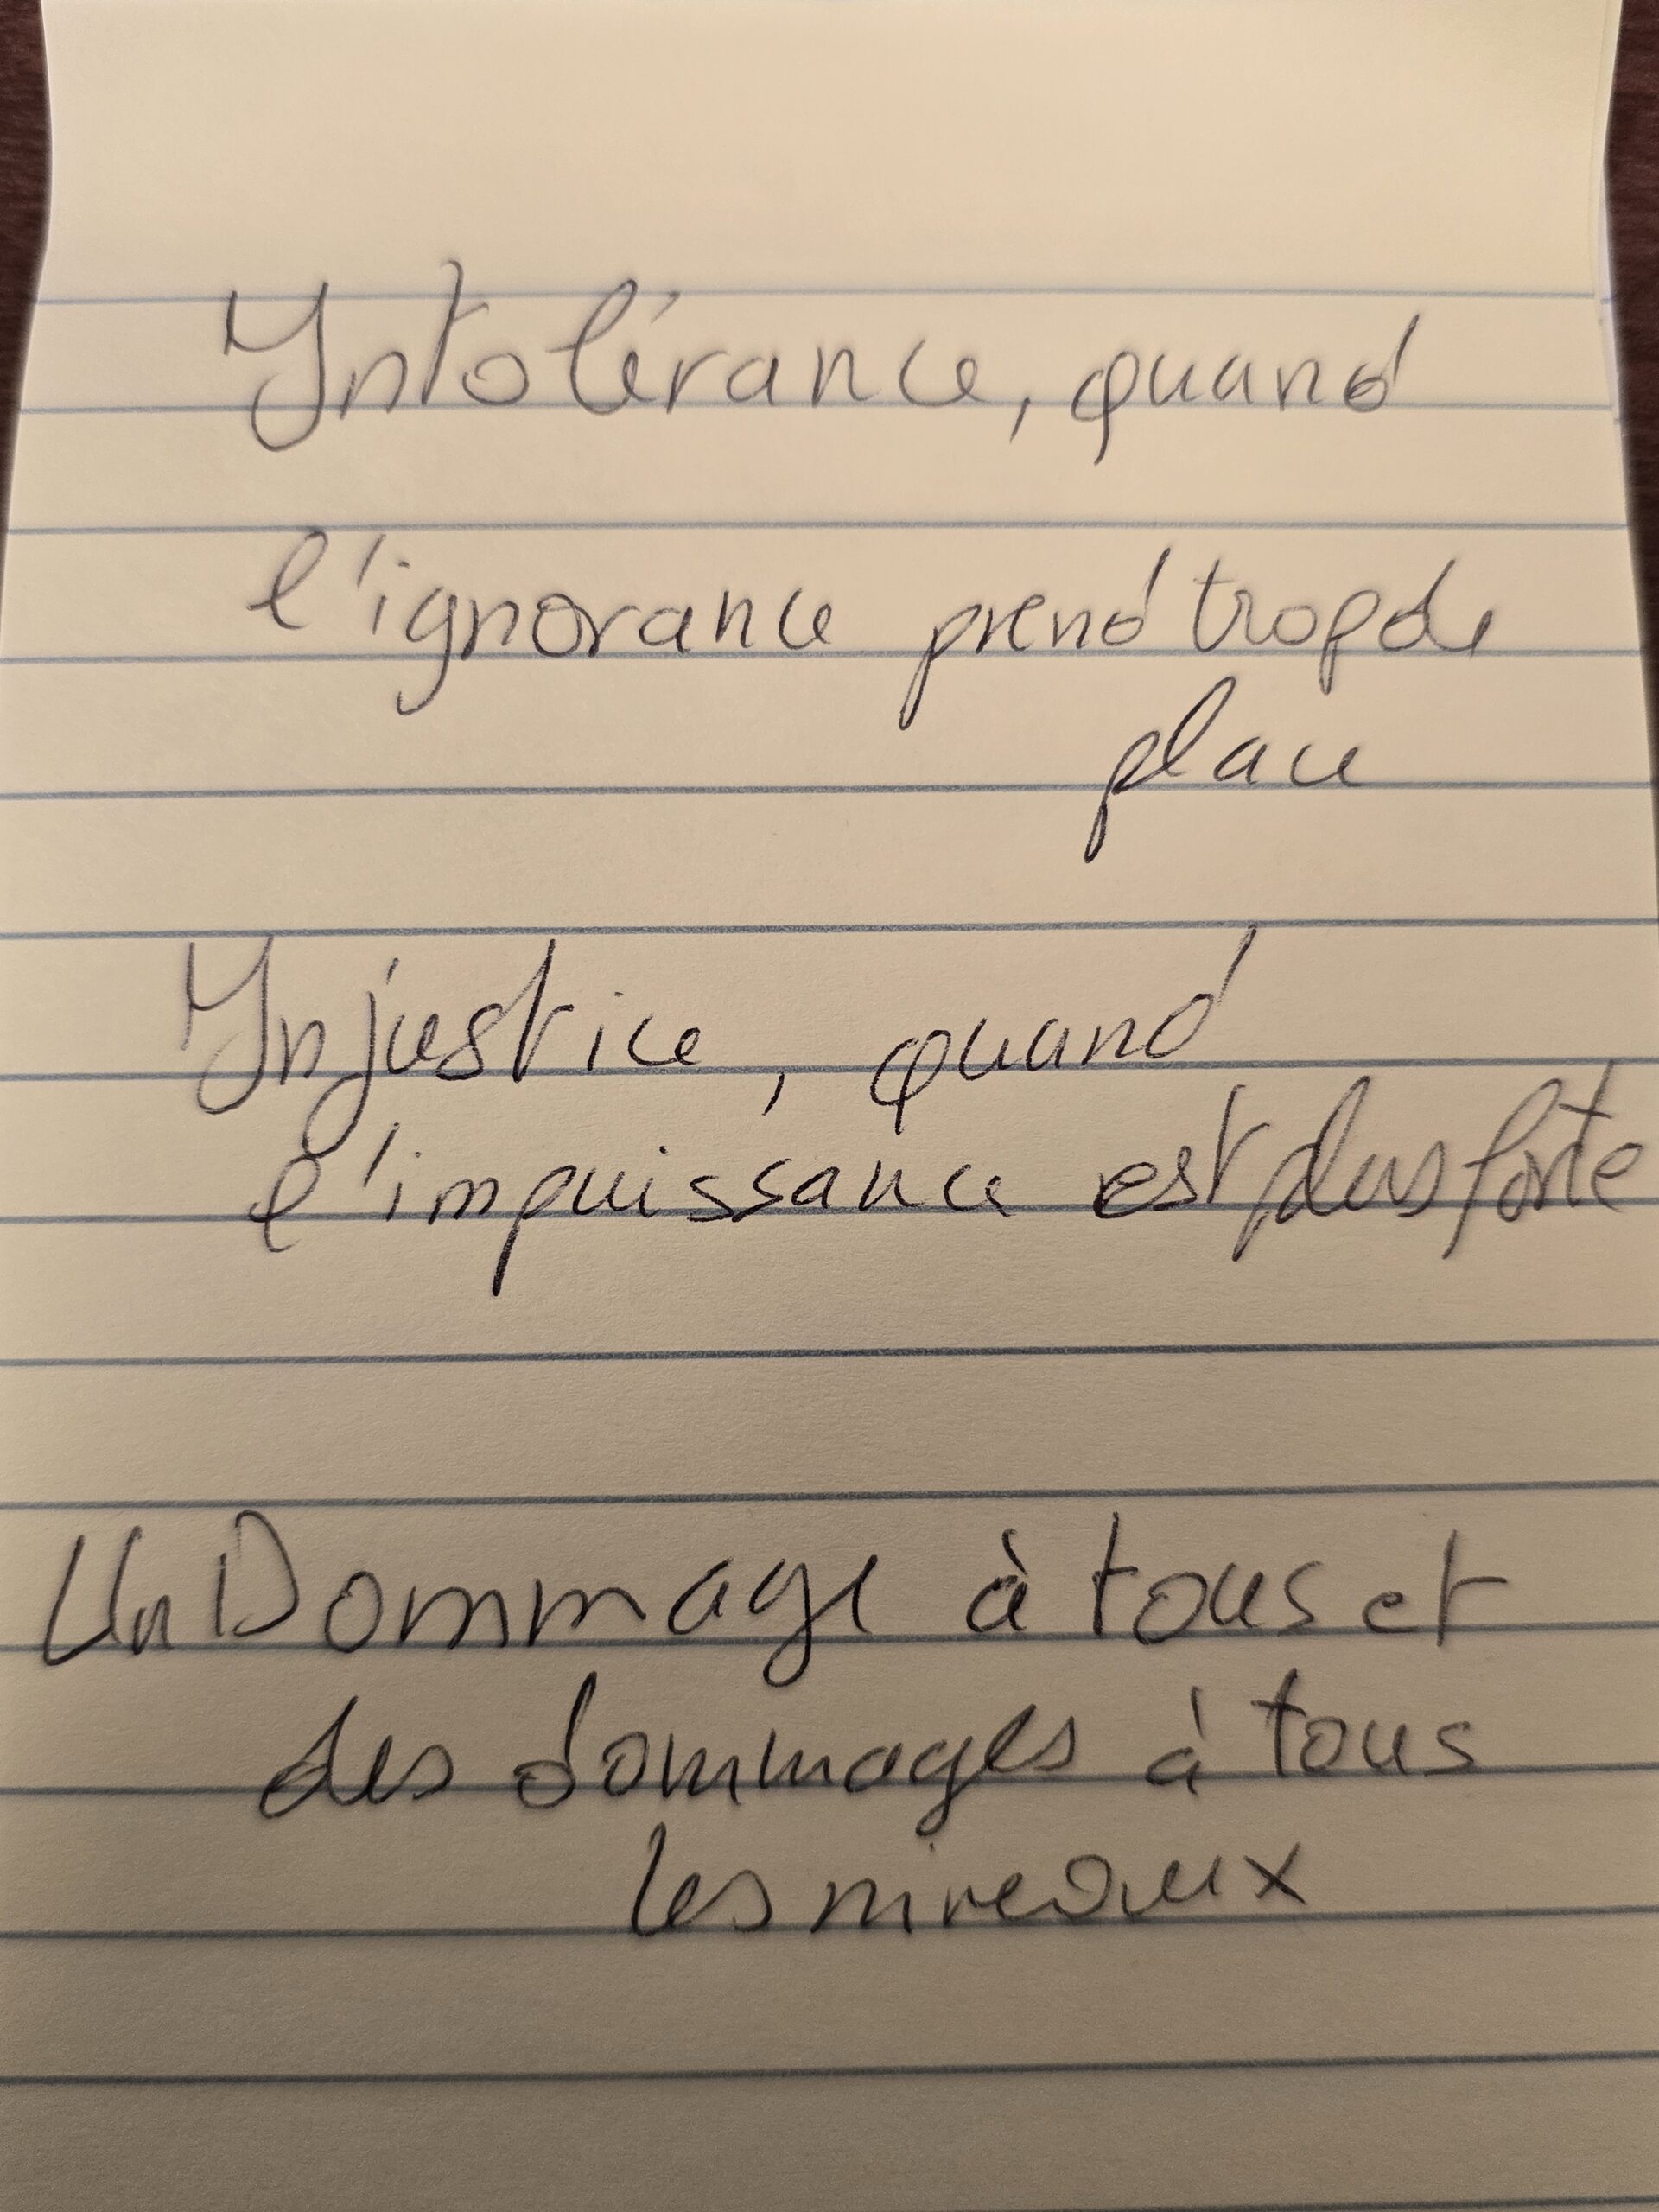 Intolérance, quand
l'ignorance prend trop de
place
Injustice, quand
l'impuissance est plus forte
Un Dommage à tous et
des dommages à tous
les niveaux